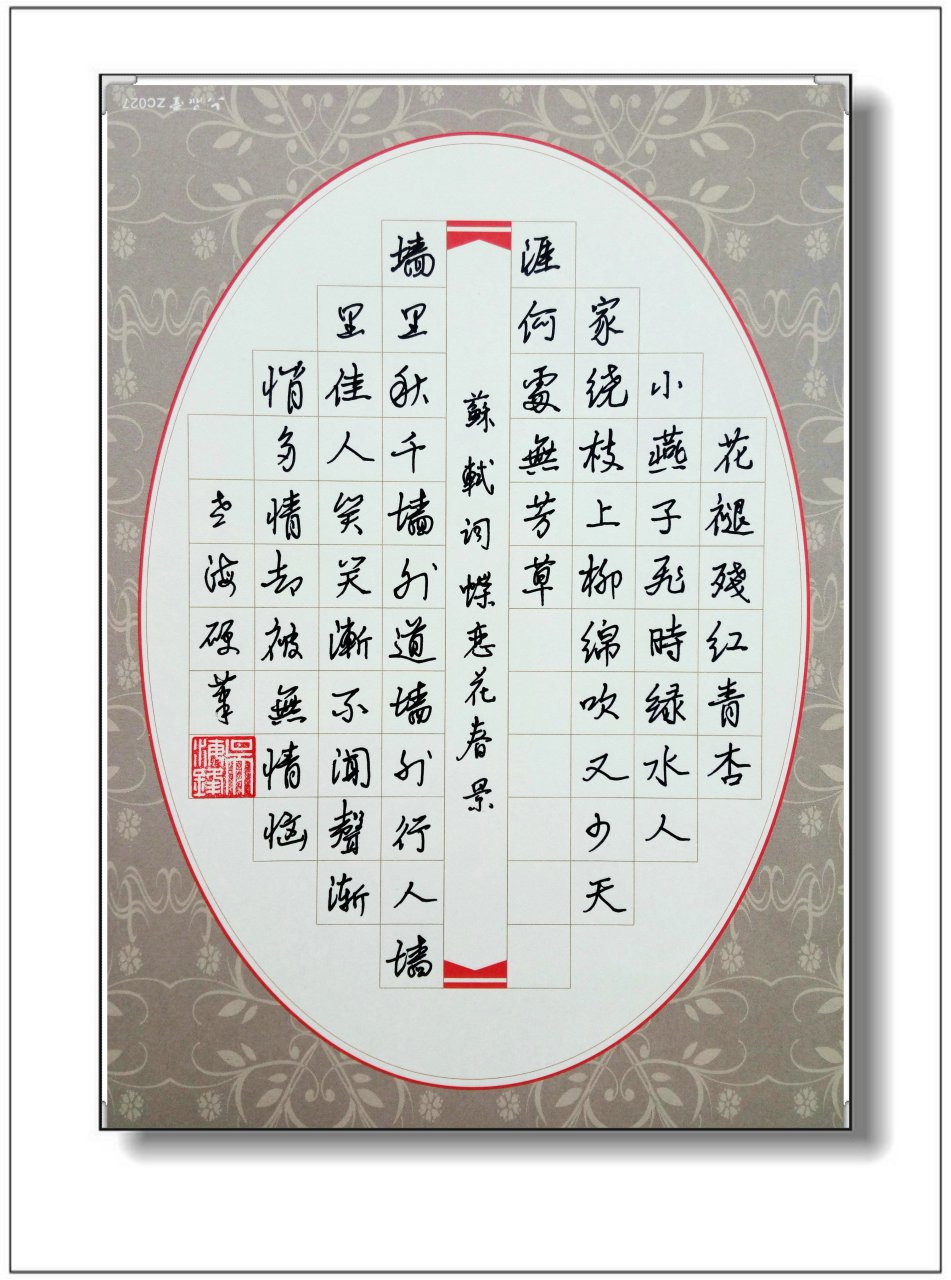 花褪殘红青杏
小燕子飛時緑水人
家绕枝上柳绵吹又少天
涯何處無芳草
蘇軾词蝶恋花春景
墙里秋千墙外道墙外行人墙
里佳人笑笑漸不闻聲漸
悄多情却被無情恼
老海硬筆
ZC027